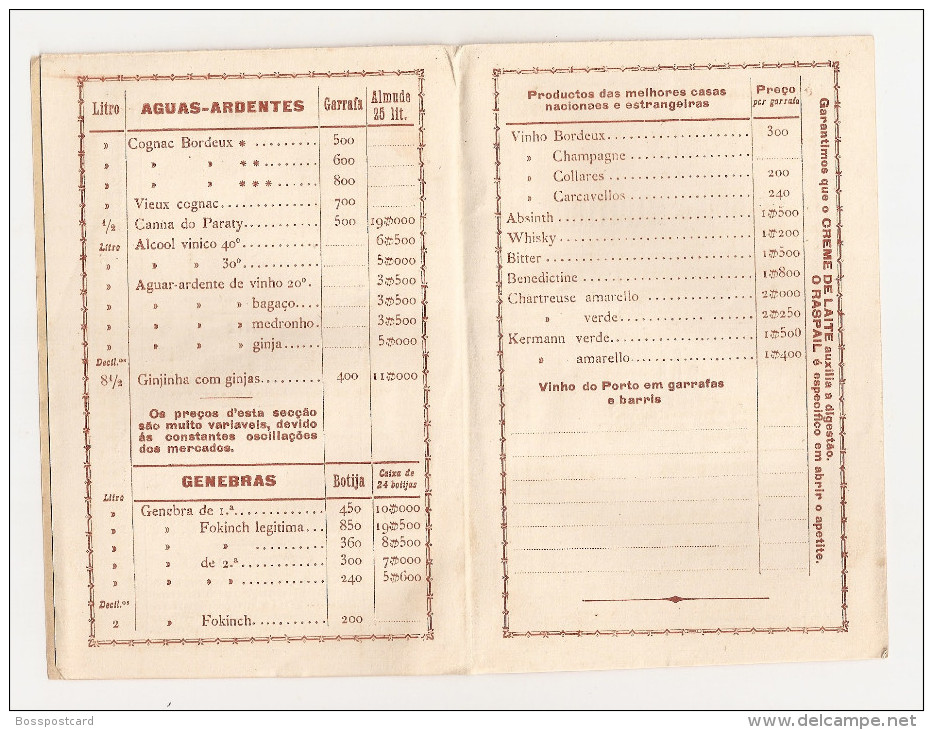 Litro AGUAS-ARDENTES Garrafa Almude 25 lit.
» Cognac Bordeux * ......... 500
» » » ** ........ 600
» » » *** ...... 800
» Vieux cognac .......... 700
1/2 Canna do Paraty .......... 500 19$000
Litro Alcool vinico 40º ............ 6$500
» » » 30º ............ 5$000
» Aguar-ardente de vinho 20º. 3$500
» » » » bagaço .... 3$500
» » » » medronho. 3$500
» » » » ginja ...... 5$000
Decil.os
8 1/2 Ginjinha com ginjas ......... 400 11$000
Os preços d'esta secção
são muito variaveis, devido
ás constantes oscillações
dos mercados.
Litro GENEBRAS Botija Caixa de 24 botijas
» Genebra de 1.ª ............. 450 10$000
» » Fokinch legitima ... 850 19$500
» » » .......... 360 8$500
» » de 2.ª ............ 300 7$000
» » » » ............ 240 5$600
Decil.os
2 » Fokinch ........... 200
Productos das melhores casas
nacionaes e estrangeiras
Preço
por garrafa
Vinho Bordeux ..................... 300
» Champagne ..................
» Collares ..................... 200
» Carcavellos .................. 240
Absinth ............................ 1$500
Whisky ............................ 1$200
Bitter .............................. 1$500
Benedictine ......................... 1$800
Chartreuse amarello ............... 2$000
» verde .................... 2$250
Kermann verde ..................... 1$500
» amarello .................. 1$400
Vinho do Porto em garrafas
e barris
Garantimos que o CREME DE LAITE auxilia a digestão.
O RASPAIL é especifico em abrir o apetite.
Bosspostcard
www.delcampe.net